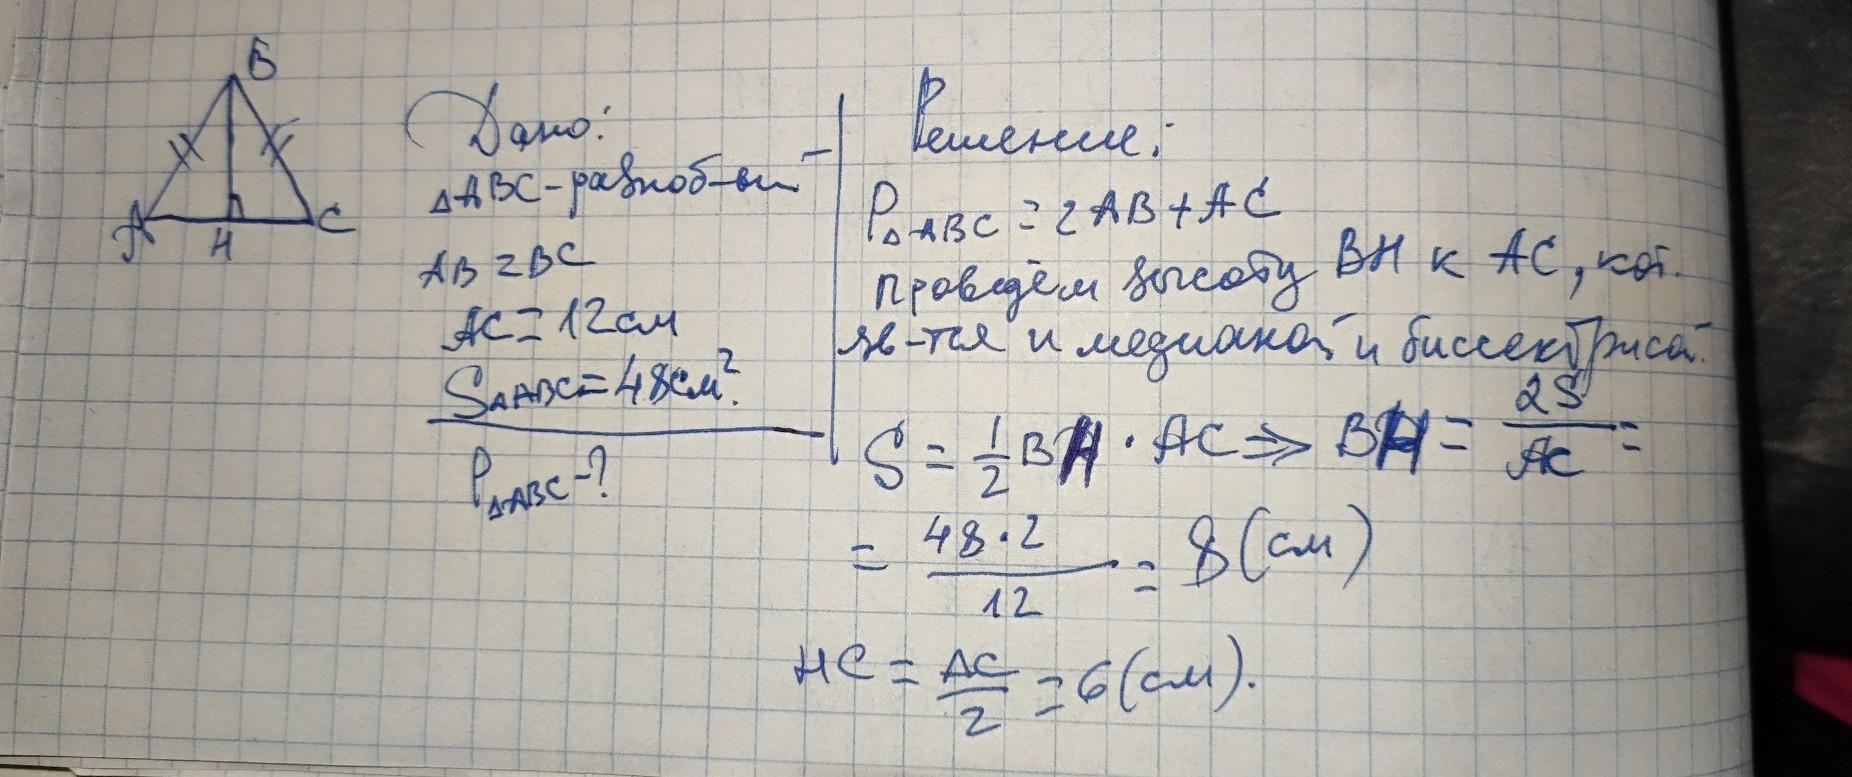 B
A
H
C
Дано:
△ABC - равноб-ый
AB = BC
AC = 12 см
S△ABC = 48 см².
P△ABC - ?
Решение:
P△ABC = 2AB + AC
Проведём высоту BH к AC, кот.
яв-тся и медианой и биссектрисой.
S = 1/2 BH · AC ⇒ BH = 2S/AC =
= 48·2/12 = 8 (см)
HC = AC/2 = 6 (см).